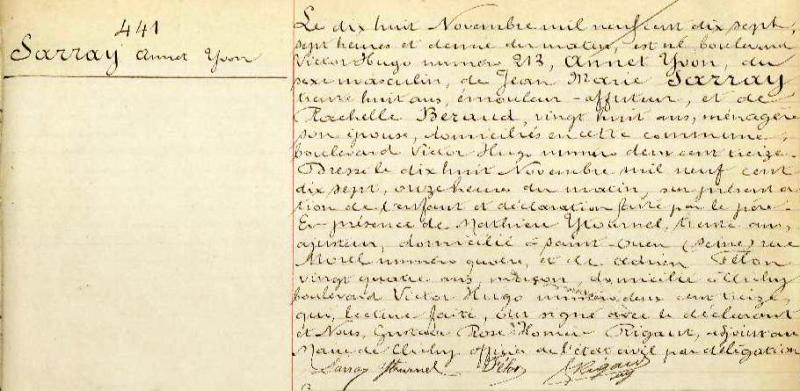 441
Sarray Annet Yvon
Le dix huit Novembre mil neuf cent dix sept,
sept heures et demie du matin, est né boulevard
Victor Hugo numéro 213, Annet Yvon, du
sexe masculin, de Jean Marie Sarray
trente huit ans, émouleur-affuteur, et de
Rachelle Beraud, vingt huit ans, ménagère
son épouse, domiciliés en cette commune
boulevard Victor Hugo numéro deux cent treize.
Dressé le dix huit Novembre mil neuf cent
dix sept, onze heures du matin, sur présenta
tion de l'enfant et déclaration faite par le père.
En présence de Mathieu Ytournel, trente ans,
ajusteur, domicilié à Saint-Ouen (Seine) rue
Morel numéro quatre, et de Adrien Félon
vingt quatre ans, maçon, domicilié à Clichy
boulevard Victor Hugo numéro deux cent treize,
qui, lecture faite, ont signé avec le déclarant
et Nous, Gustave Rose Homère Rigaut, adjoint au
Maire de Clichy officier de l'état civil par délégation
Sarray Ytournel Félon Rigaut